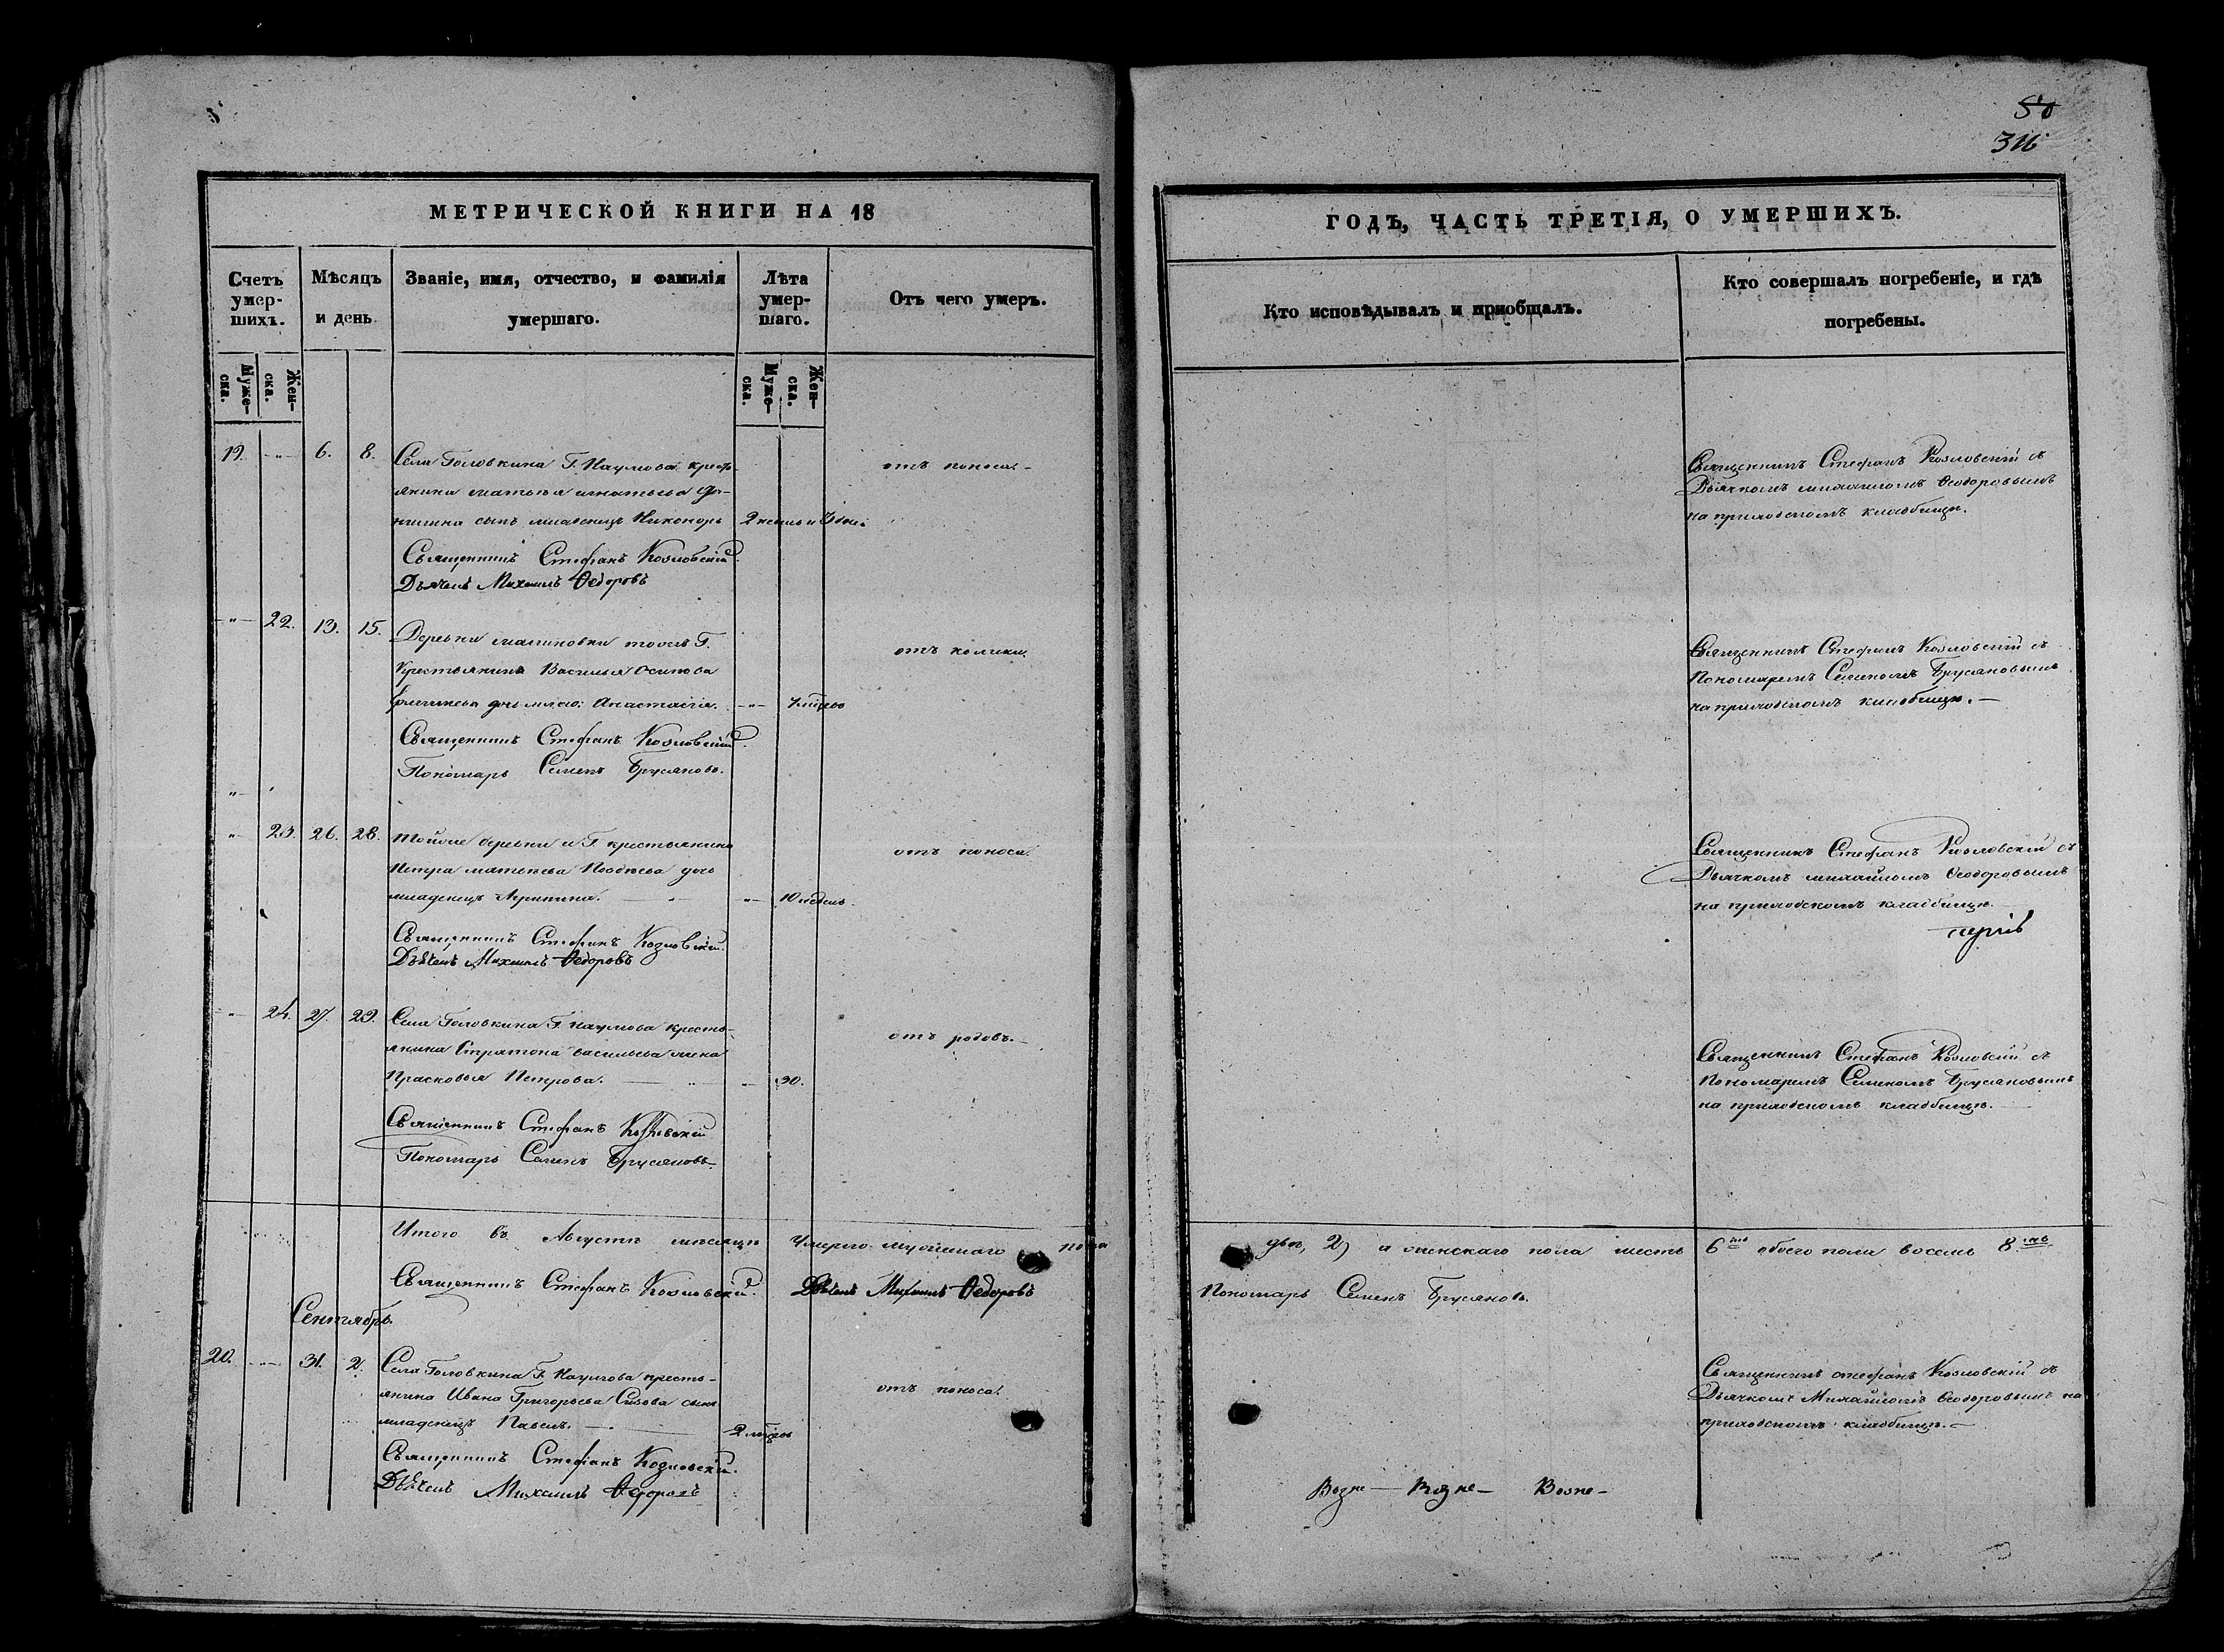 50
316
МЕТРИЧЕСКОЙ КНИГИ НА 18
ГОДЪ, ЧАСТЬ ТРЕТІЯ, О УМЕРШИХЪ.
Счетъ умер-шихъ.
Мѣсяцъ и день
Званіе, имя, отчество, и фамилія умершаго.
Лѣта умер-шаго.
Отъ чего умеръ.
Кто исповѣдывалъ и пріобщалъ.
Кто совершалъ погребеніе, и гдѣ погребены.
Муже-ска.
Жен-ска.
Муже-ска.
Жен-ска.
19. -"- 6. 8. Села Головкина Г. Наумова кресть-
янина Матвѣя Игнатьева
сынъ младенецъ Никоноръ 2 недель и 3 дни
отъ поноса. -
Священникъ Стефанъ Козловскій съ
Дьячкомъ Михаиломъ Ѳеодоровымъ
на приходскомъ кладбищѣ.
Священникъ Стефанъ Козловскій.
Дьячекъ Михаилъ Ѳедоровъ
-"- 22. 13. 15. Деревни Малиновки тогоже Г.
Крестьянина Василья Осипова
дочь млад: Анастасія. -"-
отъ колики.
Священникъ Стефанъ Козловскій съ
Пономаремъ Семеномъ Брусяновымъ
на приходскомъ кладбищѣ. -
Священникъ Стефанъ Козловскій.
Пономарь Семенъ Брусяновъ.
"-
"- 23. 26. 28. Тойже деревни и Г. крестьянина
Петра Матвѣева Позднева дочь
младенецъ Агрипина. - " - "- 10 недель.
отъ поноса.
Священникъ Стефанъ Козловскій съ
Дьячкомъ Михайломъ Ѳеодоровымъ
на приходскомъ кладбищѣ.
Священникъ Стефанъ Козловскій.
Дьячекъ Михаилъ Ѳедоровъ
-"- 24. 27. 29. Села Головкина Г. Наумова кресть-
янина Стратона Васильева жена
Прасковья Петрова. - " - "- 30.
отъ родовъ. -
Священникъ Стефанъ Козловскій съ
Пономаремъ Семеномъ Брусяновымъ
на приходскомъ кладбищѣ. -
Священникъ Стефанъ Козловскій
Пономарь Семенъ Брусяновъ.
Итого въ Августѣ мѣсяцѣ умерло мужескаго пола
два, 2) а женскаго пола шесть 6 обоего пола восемь 8
Священникъ Стефанъ Козловскій. Дьячекъ Михаилъ Ѳедоровъ
Пономарь Семенъ Брусяновъ.
Сентябрь.
20. -"- 31. 2. Села Головкина Г. Наумова кресть-
янина Ивана Григорьева Сизова сынъ
младенецъ Павелъ. -
отъ поноса.
Священникъ Стефанъ Козловскій съ
Дьячкомъ Михайломъ Ѳеодоровымъ на
приходскомъ кладбищѣ. -
Священникъ Стефанъ Козловскій.
Дьячекъ Михаилъ Ѳедоровъ
Возне- Возне- Возне-